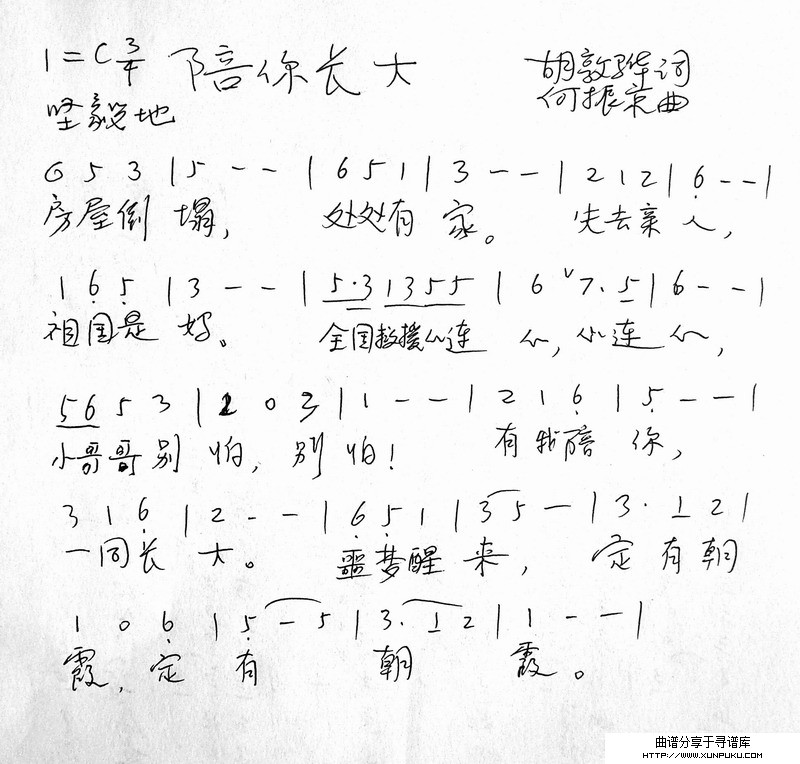 1=C 3/4 陪你长大 胡敦骅词
坚毅地 何振京曲
6 5 3 | 5 - - | 6 5 1 | 3 - - | 2 1 2 | 6̣ - - |
房屋倒 塌, 处处有 家。 失去亲 人,
1 6̣ 5̣ | 3 - - | 5·3 1355 | 6 ˅ 7· 5 | 6 - - |
祖国是 妈。 全国救援心连 心, 心连 心,
56 5 3 | 2 0 3 | 1 - - | 2 1 6̣ | 5̣ - - |
小哥哥别 怕, 别 怕! 有我陪 你,
3 1 6̣ | 2 - - | 6̣ 5̣ 1 | 3 5 - | 3· 1 2 |
一同长 大。 噩梦醒 来, 定有朝
1 0 6̣ | 5̣ - 5 | 3· 1 2 | 1 - - |
霞, 定 有 朝 霞。
曲谱分享于寻谱库
HTTP://WWW.XUNPUKU.COM